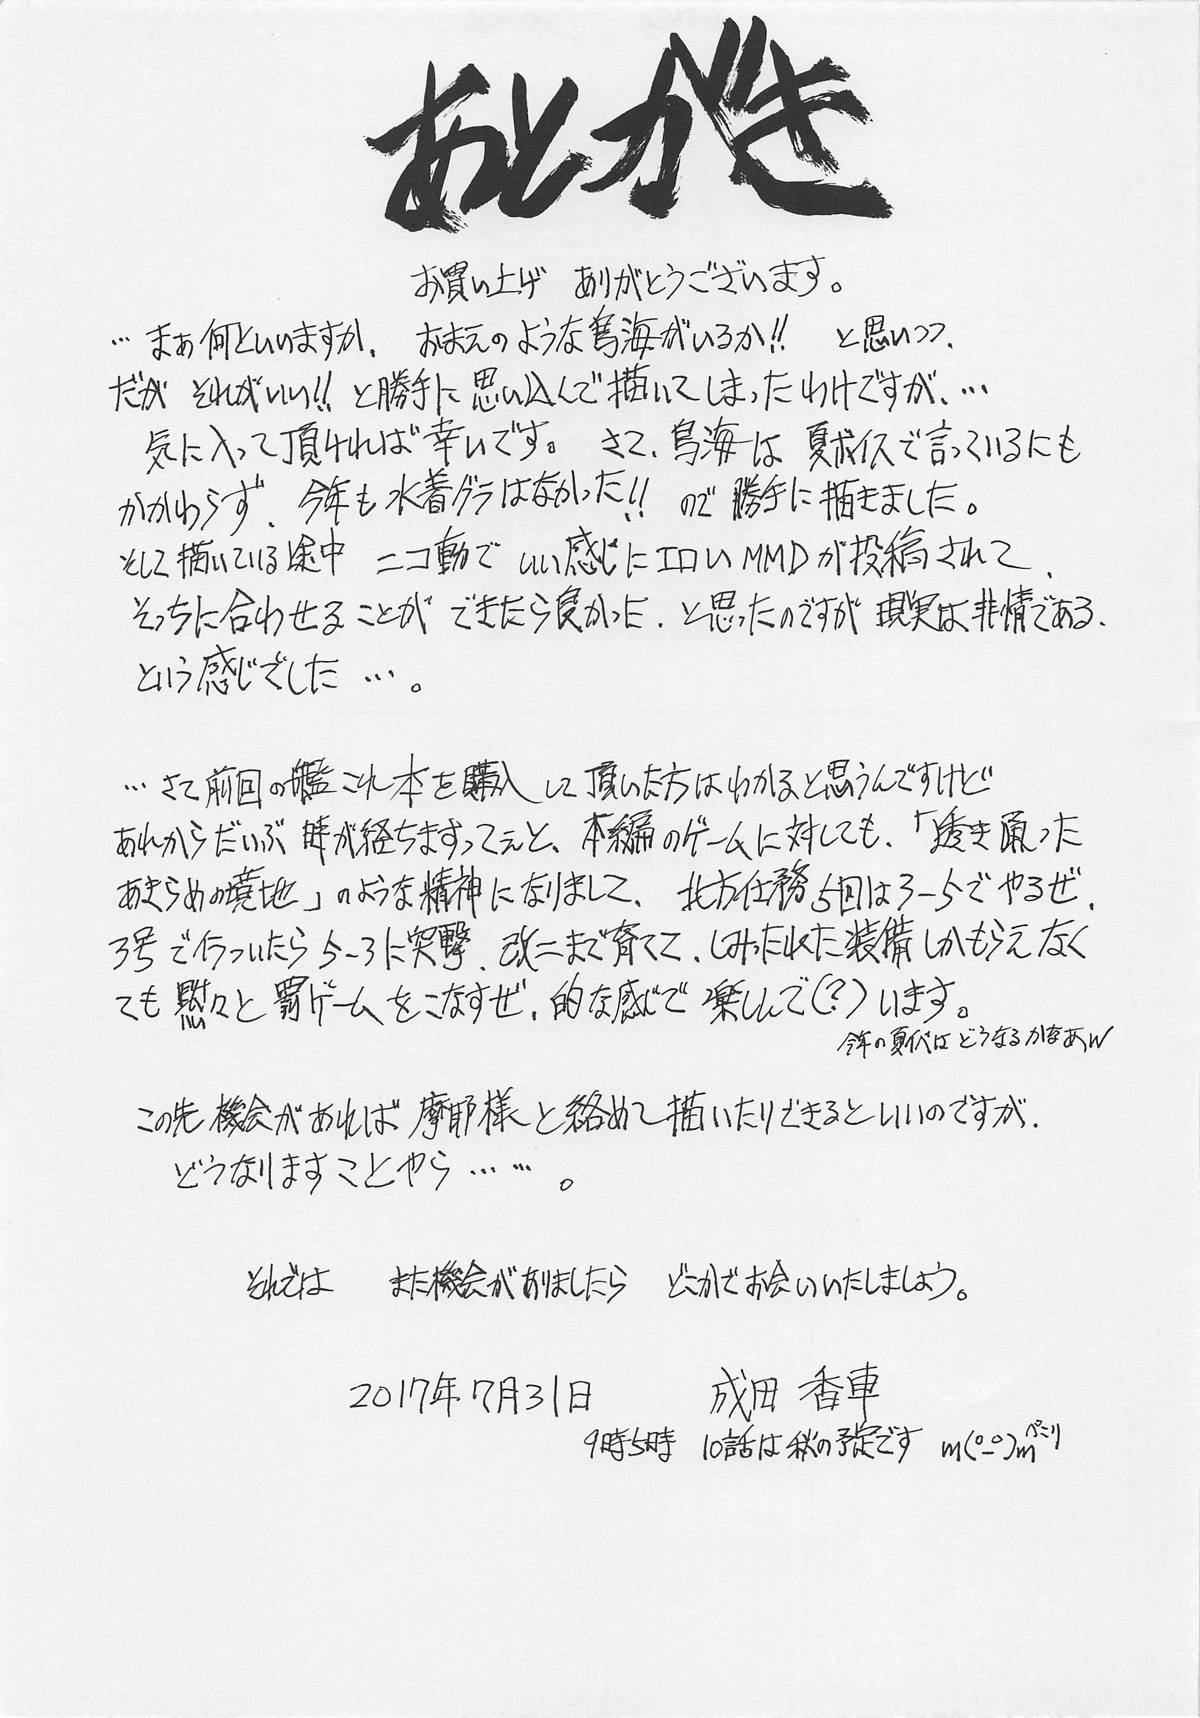 あとがき
お買い上げ ありがとうございます。
…まぁ何といいますか、 おまえのような鳥海がいるか!! と思いつつ、
だが それがいい!! と勝手に思い込んで描いてしまったわけですが、…
気に入って頂ければ幸いです。 さて、鳥海は 夏ボイスで言っているにも
かかわらず、 今年も水着グラはなかった!! ので 勝手に描きました。
そして描いている途中 ニコ動で いい感じにエロいMMDが投稿されて、
そっちに合わせることが できたら良かった、と思ったのですが 現実は非情である、
という感じでした …。
…さて前回の艦これ本を購入して頂いた方はわかると思うんですけど
あれからだいぶ 時が経ちますってぇと、本編のゲームに対しても、「透き通った
あきらめの境地」のような精神になりまして、 北方任務5回は3-5でやるぜ、
3号でイラついたら5-3に突撃、改二まで育てて、しみったれた装備しかもらえなく
ても 黙々と 罰ゲームをこなすぜ、的な感じで 楽しんで(?)います。
今年の夏イベは どうなるかなあw
この先 機会があれば 摩耶様と絡めて描いたりできるといいのですが、
どうなりますことやら……。
それでは また機会がありましたら どこかでお会いいたしましょう。
2017年7月31日 成田 香車
9時5時 10話は 秋の予定です m(°_°)m ぺこり